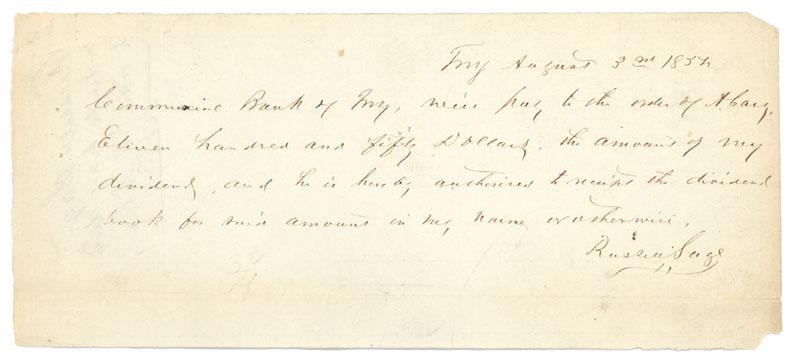 Troy August 3rd 1852
Commercial Bank of Troy, will pay to the order of A. Cary,
Eleven hundred and fifty Dollars, the amount of my
dividend, and he is hereby authorised to receipt the dividend
book for said amount in my name or otherwise.
Russell Sage